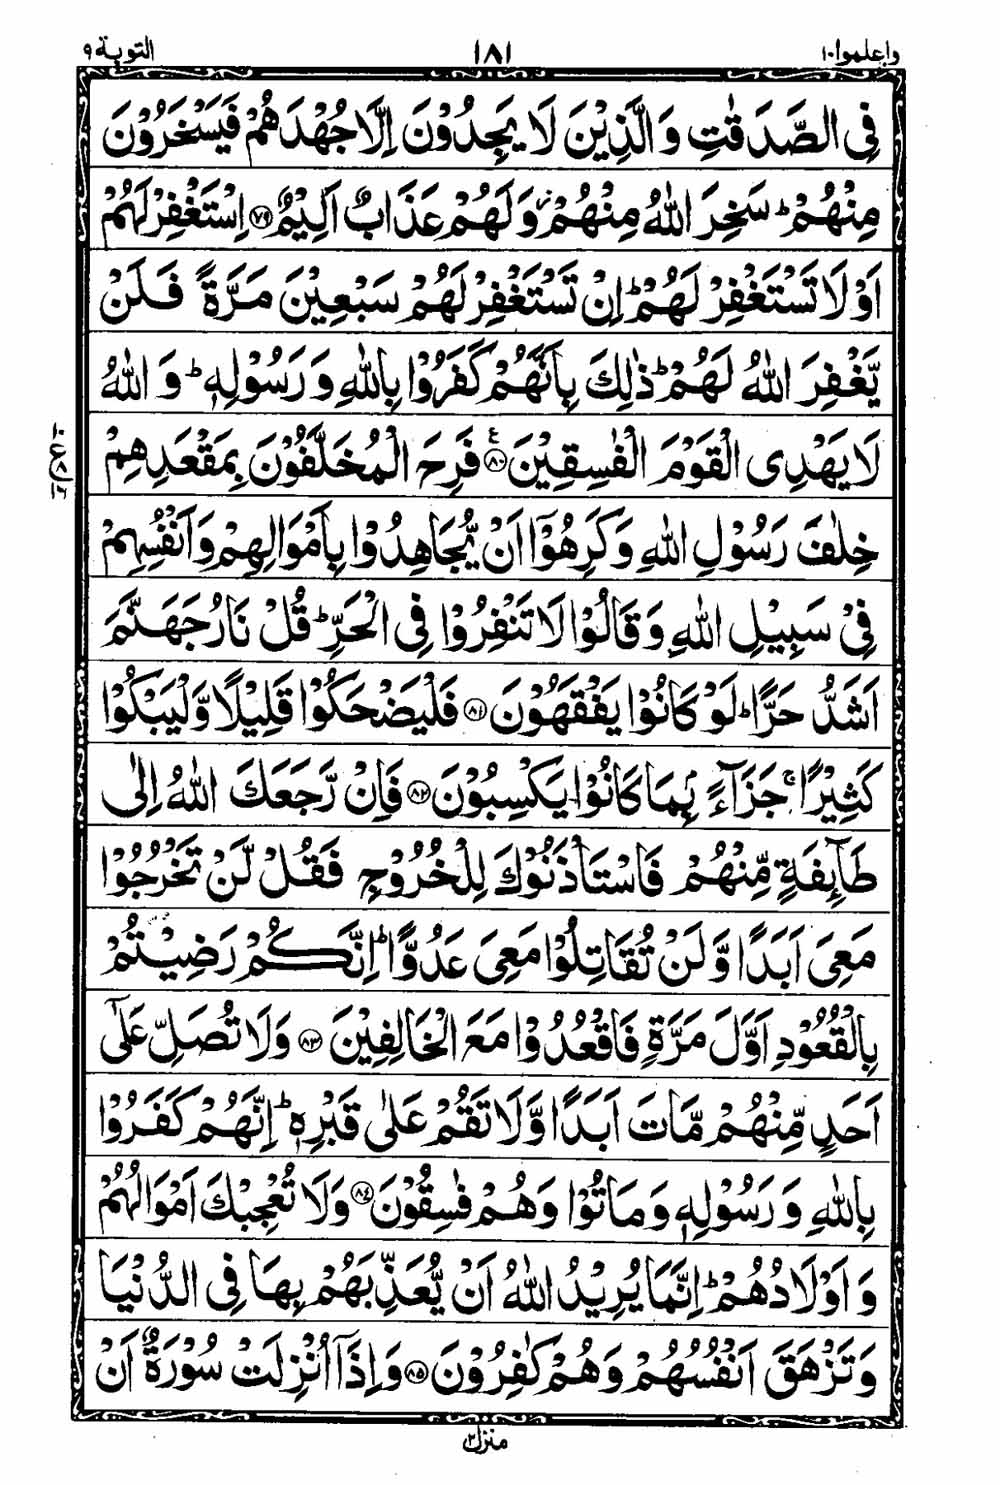 واعلموا ١٠ ١٨١ التوبة ٩
فِى الصَّدَقٰتِ وَالَّذِيْنَ لَا يَجِدُوْنَ اِلَّا جُهْدَهُمْ فَيَسْخَرُوْنَ
مِنْهُمْ ؕ سَخِرَ اللّٰهُ مِنْهُمْ ؗ وَلَهُمْ عَذَابٌ اَلِيْمٌ ﴿۷۹﴾ اِسْتَغْفِرْ لَهُمْ
اَوْ لَا تَسْتَغْفِرْ لَهُمْ ؕ اِنْ تَسْتَغْفِرْ لَهُمْ سَبْعِيْنَ مَرَّةً فَلَنْ
يَّغْفِرَ اللّٰهُ لَهُمْ ؕ ذٰلِكَ بِاَنَّهُمْ كَفَرُوْا بِاللّٰهِ وَ رَسُوْلِهٖ ؕ وَ اللّٰهُ
لَا يَهْدِى الْقَوْمَ الْفٰسِقِيْنَ ﴿۸۰﴾ ع فَرِحَ الْمُخَلَّفُوْنَ بِمَقْعَدِهِمْ
خِلٰفَ رَسُوْلِ اللّٰهِ وَكَرِهُوْۤا اَنْ يُّجَاهِدُوْا بِاَمْوَالِهِمْ وَاَنْفُسِهِمْ
فِىْ سَبِيْلِ اللّٰهِ وَقَالُوْا لَا تَنْفِرُوْا فِى الْحَرِّ ؕ قُلْ نَارُ جَهَنَّمَ
اَشَدُّ حَرًّا ؕ لَوْ كَانُوْا يَفْقَهُوْنَ ﴿۸۱﴾ فَلْيَضْحَكُوْا قَلِيْلًا وَّلْيَبْكُوْا
كَثِيْرًا ۚ جَزَآءًۢ بِمَا كَانُوْا يَكْسِبُوْنَ ﴿۸۲﴾ فَاِنْ رَّجَعَكَ اللّٰهُ اِلٰى
طَآئِفَةٍ مِّنْهُمْ فَاسْتَاْذَنُوْكَ لِلْخُرُوْجِ فَقُلْ لَّنْ تَخْرُجُوْا
مَعِىَ اَبَدًا وَّلَنْ تُقَاتِلُوْا مَعِىَ عَدُوًّا ؕ اِنَّكُمْ رَضِيْتُمْ
بِالْقُعُوْدِ اَوَّلَ مَرَّةٍ فَاقْعُدُوْا مَعَ الْخَالِفِيْنَ ﴿۸۳﴾ وَلَا تُصَلِّ عَلٰٓى
اَحَدٍ مِّنْهُمْ مَّاتَ اَبَدًا وَّلَا تَقُمْ عَلٰى قَبْرِهٖ ؕ اِنَّهُمْ كَفَرُوْا
بِاللّٰهِ وَ رَسُوْلِهٖ وَمَاتُوْا وَهُمْ فٰسِقُوْنَ ﴿۸۴﴾ وَلَا تُعْجِبْكَ اَمْوَالُهُمْ
وَ اَوْلَادُهُمْ ؕ اِنَّمَا يُرِيْدُ اللّٰهُ اَنْ يُّعَذِّبَهُمْ بِهَا فِى الدُّنْيَا
وَتَزْهَقَ اَنْفُسُهُمْ وَهُمْ كٰفِرُوْنَ ﴿۸۵﴾ وَاِذَاۤ اُنْزِلَتْ سُوْرَةٌ اَنْ
منزل ٢